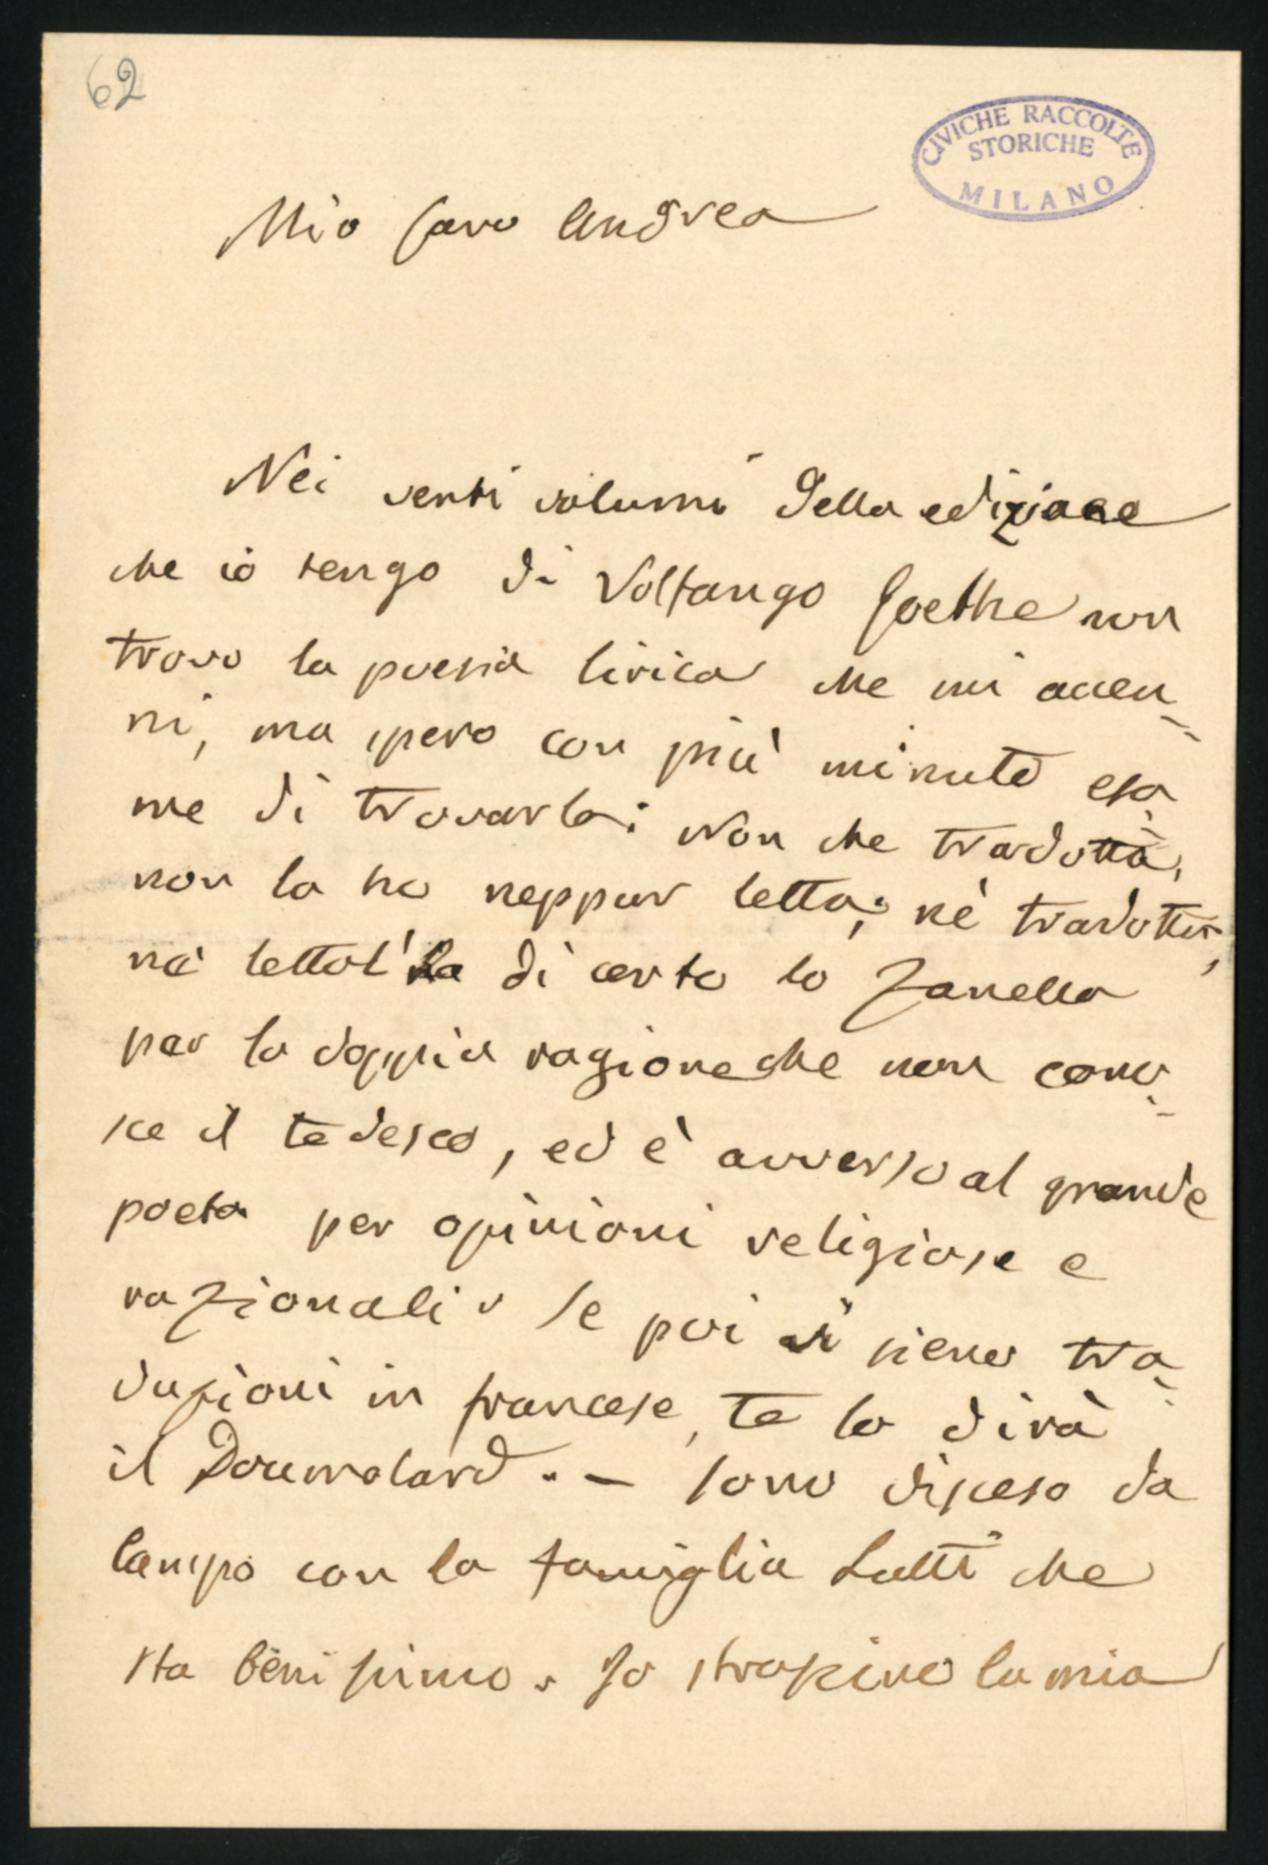 62
CIVICHE RACCOLTE
STORICHE
MILANO
Mio Caro Andrea
Nei venti volumi della edizione
che io tengo di Volfango Goethe non
trovo la poesia lirica che mi accen-
ni, ma spero con più minuto esa-
me di trovarla: Non che tradotta,
non la ho neppur letta; nè tradotta,
nè letta l'ha di certo lo Zanella
per la doppia ragione che non cono-
sce il tedesco, ed è avverso al grande
poeta per opinioni religiose e
razionali. Se poi vi sieno tra-
duzioni in francese, te lo dirà
il Doumolard. - Sono disceso da
Campo con la famiglia Lutti che
sta benissimo. Io strascino la mia